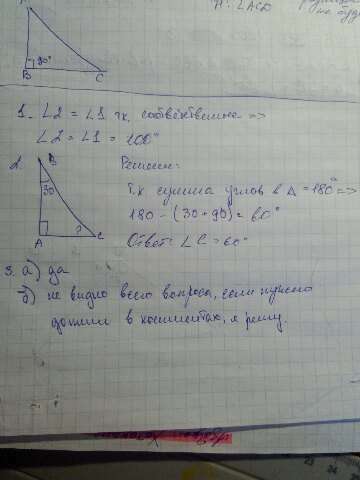 В 90° С
1. ∠2 = ∠1 т.к. соответственные =>
∠2 = ∠1 = 100°
2. В Решение:
30 Т.к сумма углов в Δ = 180° =>
180 - (30 + 90) = 60°
А ? С Ответ: ∠С = 60°
3. а) да
б) не видно всего вопроса, если нужно
допиши в комментах, я решу.